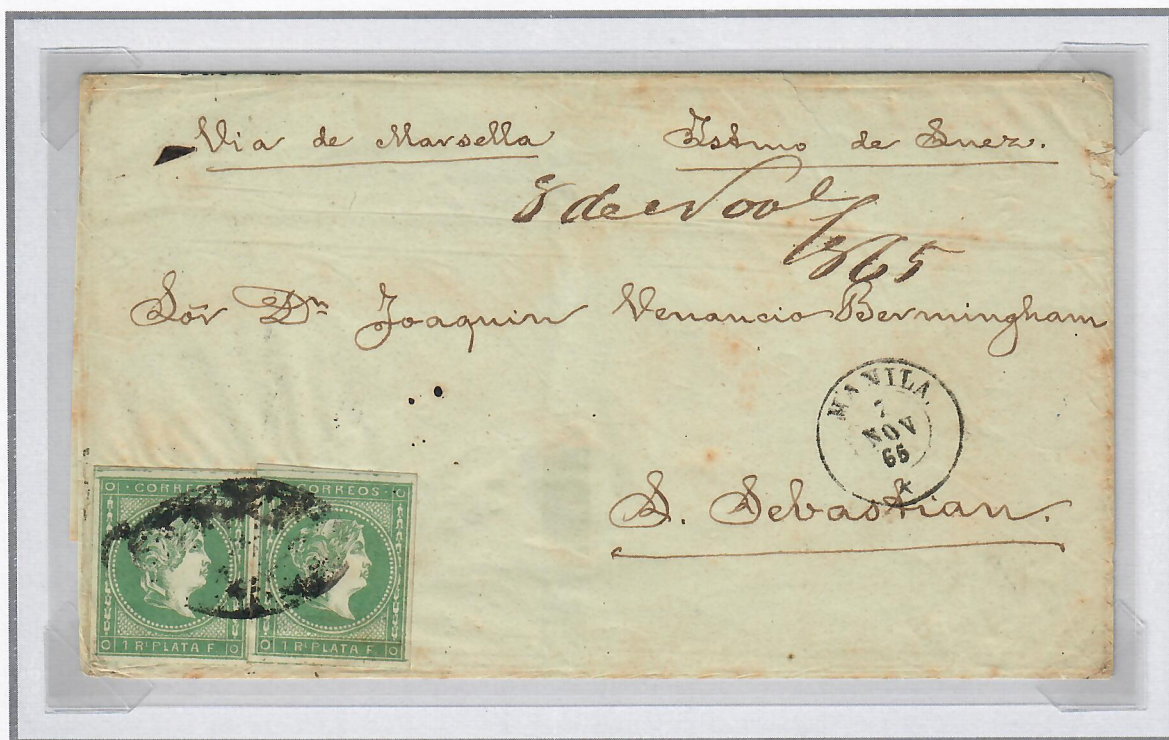 Via de Marsella Istmo de Suez.
8 de Nov.e
/865
Sōr Dn Joaquin Venancio Bermingham
MANILA.
7
NOV
65
S. Sebastian.
· CORREOS · · CORREOS ·
1 Rl PLATA F. 1 Rl PLATA F.